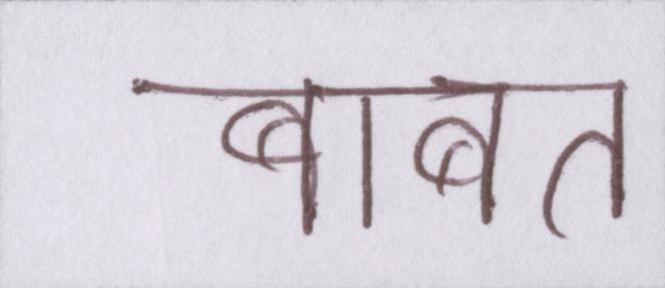 बाबत